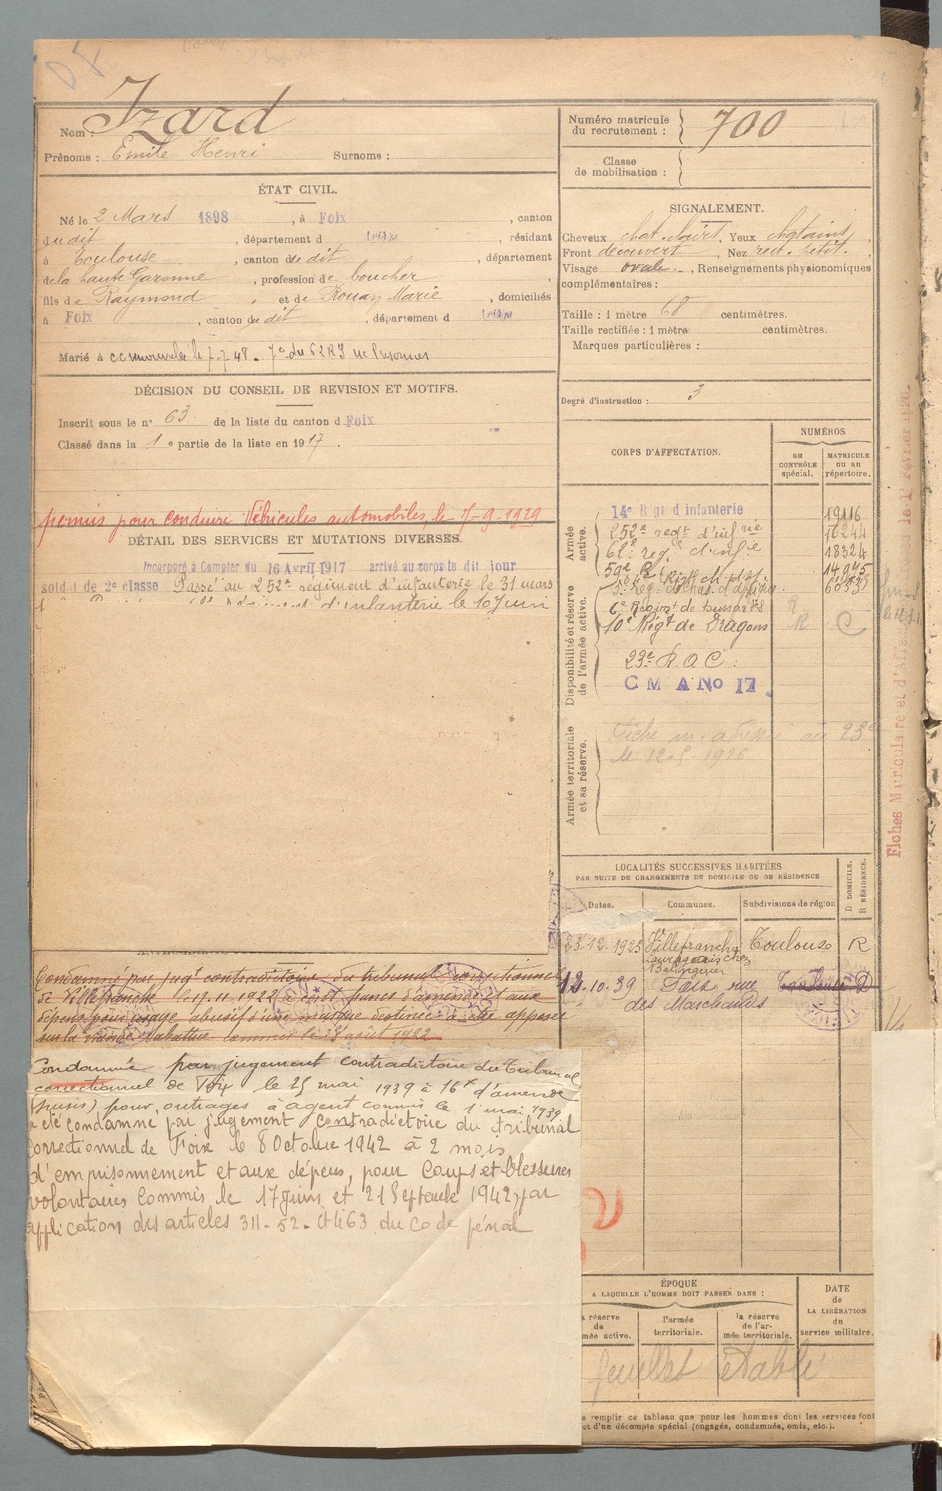 Nom : Izard
Prénoms : Emile Henri Surnoms :
Numéro matricule
du recrutement : 700
Classe
de mobilisation :
ÉTAT CIVIL.
Né le 2 Mars 1898, à Foix, canton
dudit, département d, résidant
à Toulouse, canton dudit, département
de la haute Garonne, profession de boucher
fils de Raymond et de Rouan Marie, domiciliés
à Foix, canton dudit, département d
Marié à
SIGNALEMENT.
Cheveux chat. , Yeux chatains,
Front découvert, Nez rect. petit.
Visage ovale, Renseignements physionomiques
complémentaires :
Taille : 1 mètre 68 centimètres.
Taille rectifiée : 1 mètre centimètres.
Marques particulières :
Degré d'instruction : 3
DÉCISION DU CONSEIL DE REVISION ET MOTIFS.
Inscrit sous le n° 63 de la liste du canton d Foix
Classé dans la 1e partie de la liste en 1917.
permis pour conduire Véhicules automobiles, le
DÉTAIL DES SERVICES ET MUTATIONS DIVERSES.
Incorporé à Compter du 16 Avril 1917 arrivé au corps le dit jour
soldat de 2e classe Passé au 252e régiment d'infanterie le 31 mars
d'infanterie le 10 Juin
CORPS D'AFFECTATION.
NUMÉROS
AU CONTRÔLE spécial.
MATRICULE OU AU répertoire.
Armée active.
14e Rgt d'infanterie 19116
252e regt d'infrie 16244
62e regt d'infie 18324
Disponibilité et réserve de l'armée active.
6e Régimt de hussards R
10e Régt de Dragons R C
23e R.A.C.
C M A No 17
Armée territoriale et sa réserve.
Fiche au 23e
le 12-5-1926
Fiches Matriculaire et d'Affec le 1er Février 1920.
LOCALITÉS SUCCESSIVES HABITÉES
PAR SUITE DE CHANGEMENTS DE DOMICILE OU DE RÉSIDENCE
Dates. Communes. Subdivisions de région
D DOMICILE. R RÉSIDENCE.
23.12.1923 Villefranche Toulouse R
Lauragais chez
Belinguier
12.10.39 Foix rue Toulouse D
des Marchands
Condamné par jugt contradictoire du tribunal correctionnel
de Villefranche le 17.11.1922 à cent francs d'amende et aux
dépens pour usage abusif d'une marque destinée à être apposée
sur la viande abattue commis le 28 août 1922
Condamné par jugement contradictoire du Tribunal
correctionnel de Foix le 25 mai 1939 à 16f d'amende
(sursis) pour outrages à agent commis le 1 mai 1939
a été condamné par jugement contradictoire du tribunal
correctionnel de Foix le 8 Octobre 1942 à 2 mois
d'emprisonnement et aux dépens, pour Coups et blessures
volontaires Commis le 17 juin et 21 Septembre 1942, par
application des articles 311-52-et 463 du Code pénal
ÉPOQUE
A LAQUELLE L'HOMME DOIT PASSER DANS :
la réserve de l'armée active.
l'armée territoriale.
la réserve de l'armée territoriale.
DATE
de
LA LIBÉRATION
du
service militaire.
feuillet établi
remplir ce tableau que pour les hommes dont les services font
d'un décompte spécial (engagés, condamnés, omis, etc.).